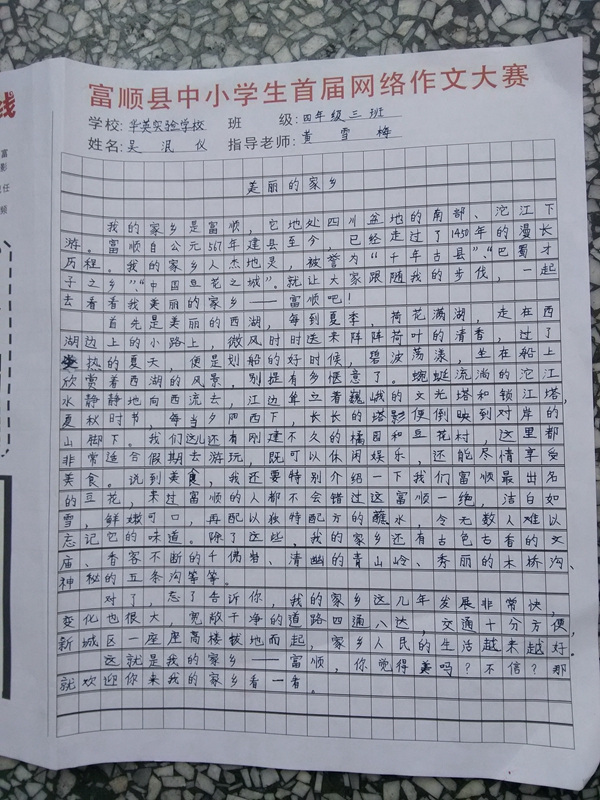 富顺县中小学生首届网络作文大赛
学校:华英实验学校 班 级:四年级三班
姓名:吴泯仪 指导老师:黄雪梅
美丽的家乡
我的家乡是富顺,它地处四川盆地的南部、沱江下
游。富顺自公元567年建县至今,已经走过了1450年的漫长
历程。我的家乡人杰地灵,被誉为“千年古县”、“巴蜀才
子之乡”“中国豆花之城”。就让大家跟随我的步伐,一起
去看看我美丽的家乡——富顺吧!
首先是美丽的西湖,每到夏季,荷花满湖,走在西
湖边上的小路上,微风时时送来阵阵荷叶的清香,过了
炎热的夏天,便是划船的好时候,碧波荡漾,坐在船上
欣赏着西湖的风景,别提有多惬意了。蜿蜒流淌的沱江
水静静地向西流去,江边耸立着巍峨的文光塔和锁江塔,
夏秋时节,每当夕阳西下,长长的塔影便倒映到对岸的
山脚下。我们这儿还有刚建不久的橘园和豆花村,这里都
非常适合假期去游玩,既可以休闲娱乐,还能尽情享受
美食。说到美食,我还要特别介绍一下我们富顺最出名
的豆花,来过富顺的人都不会错过这富顺一绝,洁白如
雪,鲜嫩可口,再配以独特配方的蘸水,令无数人难以
忘记它的味道。除了这些,我的家乡还有古色古香的文
庙、香客不断的千佛岩、清幽的青山岭、秀丽的木桥沟、
神秘的五条沟等等。
对了,忘了告诉你,我的家乡这几年发展非常快,
变化也很大,宽敞干净的道路四通八达,交通十分方便,
新城区一座座高楼拔地而起,家乡人民的生活越来越好。
这就是我的家乡——富顺,你觉得美吗?不信?那
就欢迎你来我的家乡看一看。